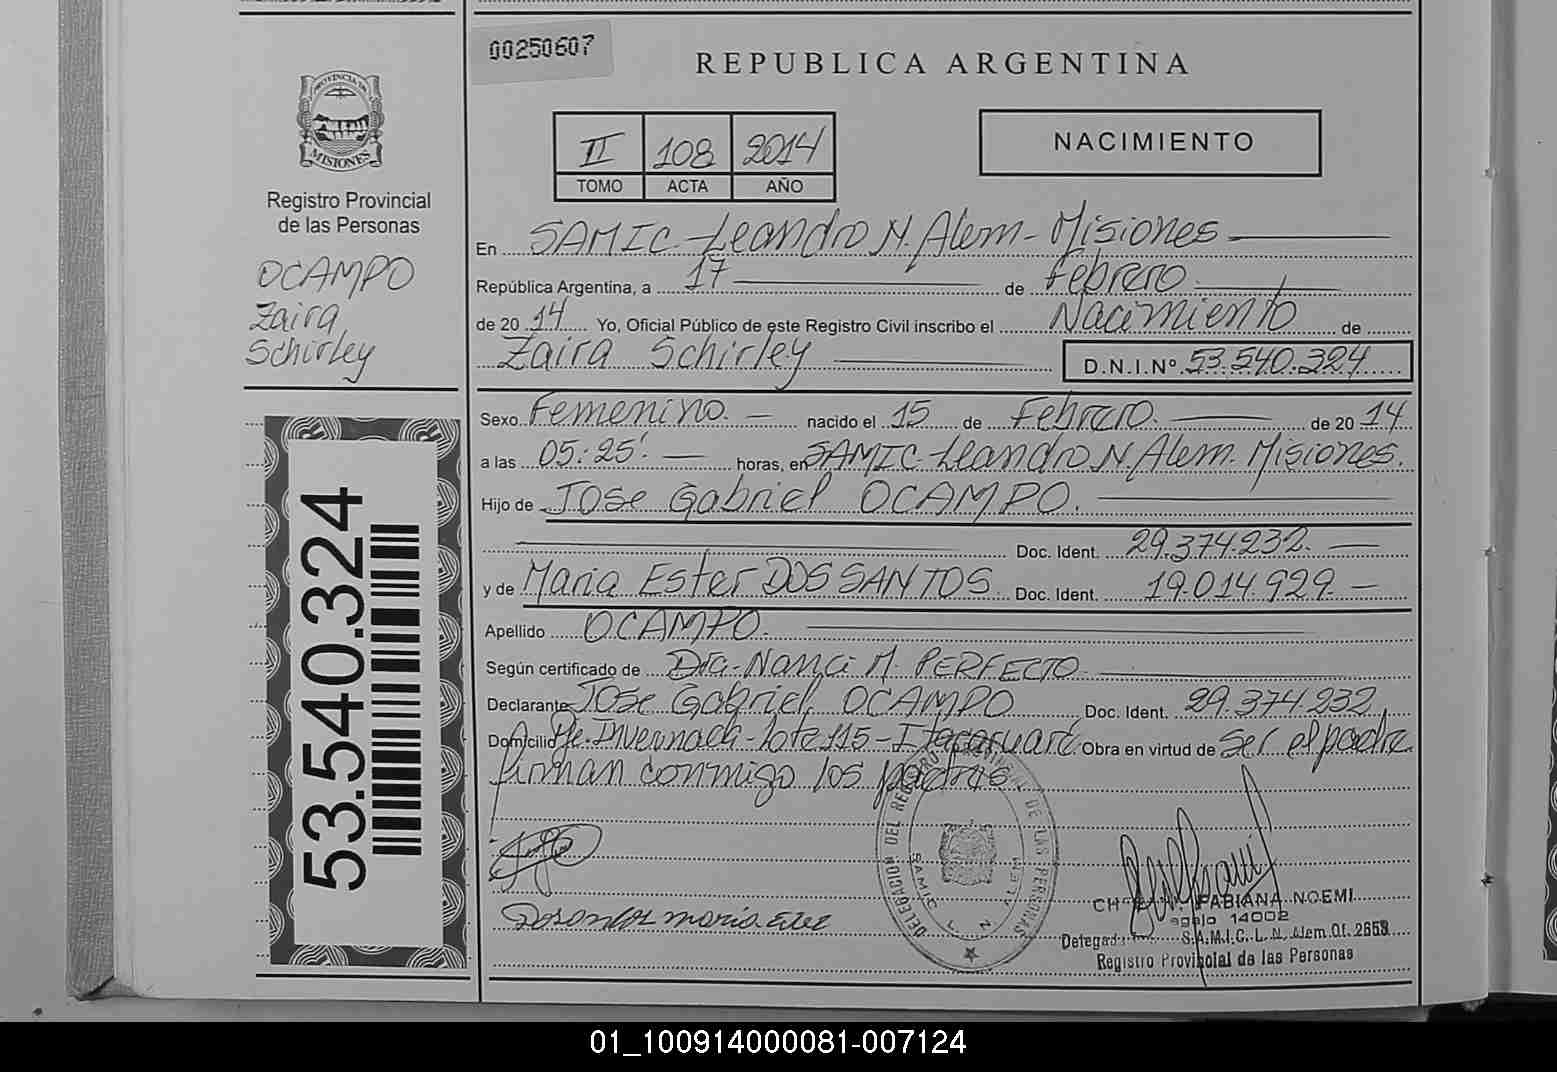 00250607
REPUBLICA ARGENTINA
PROVINCIA DE
MISIONES
Registro Provincial
de las Personas
OCAMPO
Zaira
Schirley
II 108 2014
TOMO ACTA AÑO
NACIMIENTO
En SAMIC-Leandro N. Alem-Misiones
República Argentina, a 17 de Febrero
de 20 14 Yo, Oficial Público de este Registro Civil inscribo el Nacimiento de
Zaira Schirley D.N.I.Nº 53.540.324
Sexo Femenino. nacido el 15 de Febrero. de 20 14
a las 05:25'. horas, en SAMIC-Leandro N. Alem. Misiones.
Hijo de Jose Gabriel OCAMPO.
Doc. Ident. 29.374.232.
y de Maria Ester DOS SANTOS. Doc. Ident. 19.014.929.
Apellido OCAMPO.
Según certificado de Dra. Nanci M. PERFECTO
Declarante Jose Gabriel OCAMPO Doc. Ident. 29.374.232
Domicilio Invernada-lote 115-Itacaruaré Obra en virtud de ser el padre
firman conmigo los padres.
53.540.324
DELEGACION DEL REGISTRO PROVINCIAL DE LAS PERSONAS
SAMIC L. N. ALEM
Dosantos maria Ester
FABIANA NOEMI
14002
Delegada S.A.M.I.C. L. N. Alem Of. 2653
Registro Provincial de las Personas
01_100914000081-007124